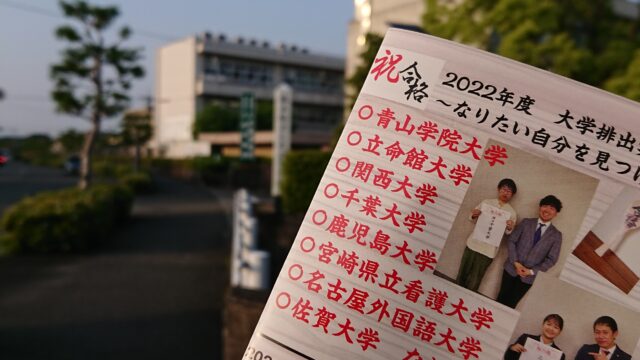 祝合格
2022年度 大学排出
～なりたい自分を見つけ
○青山学院大学
○立命館大学
○関西大学
○千葉大学
○鹿児島大学
○宮崎県立看護大学
○名古屋外国語大学
○佐賀大学 な
202